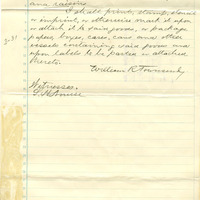 and razors.
2-31 I shall print, stamp, stencil
or imprint, or otherwise mark it upon
or attach it to said goods, or package
paper, boxes, cases, cans and other
vessels containing said goods and
upon labels to be pasted or attached
thereto.
William R. Townsend
Witnesses.